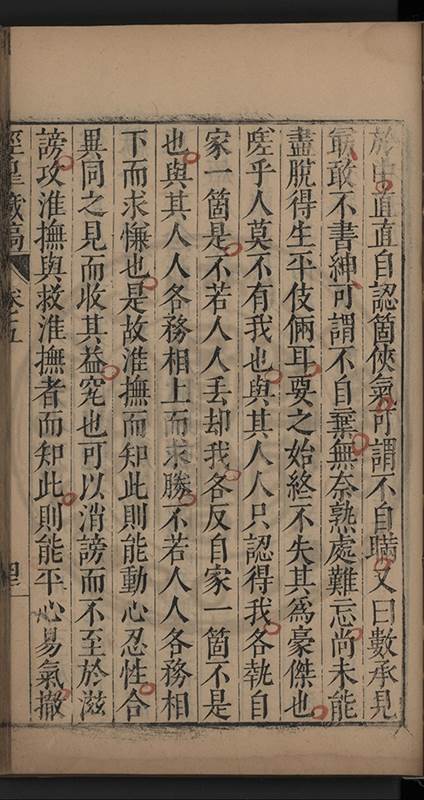 於中直直自認箇俠氣可謂不自瞞又曰數承見
敢不書紳可謂不自棄無奈熟處難忘尚未能
盡脫得生平伎倆耳要之始終不失其為豪傑也
嗟乎人莫不有我也與其人人只認得我各執自
家一箇是不若人人丟却我各反自家一箇不是
也與其人人各務相上而求勝不若人人各務相
下而求慊也是故淮撫而知此則能動心忍性合
異同之見而收其益究也可以消謗而不至於滋
謗攻淮撫與救淮撫者而知此則能平心易氣撤
涇臯藏稿 卷之五 四